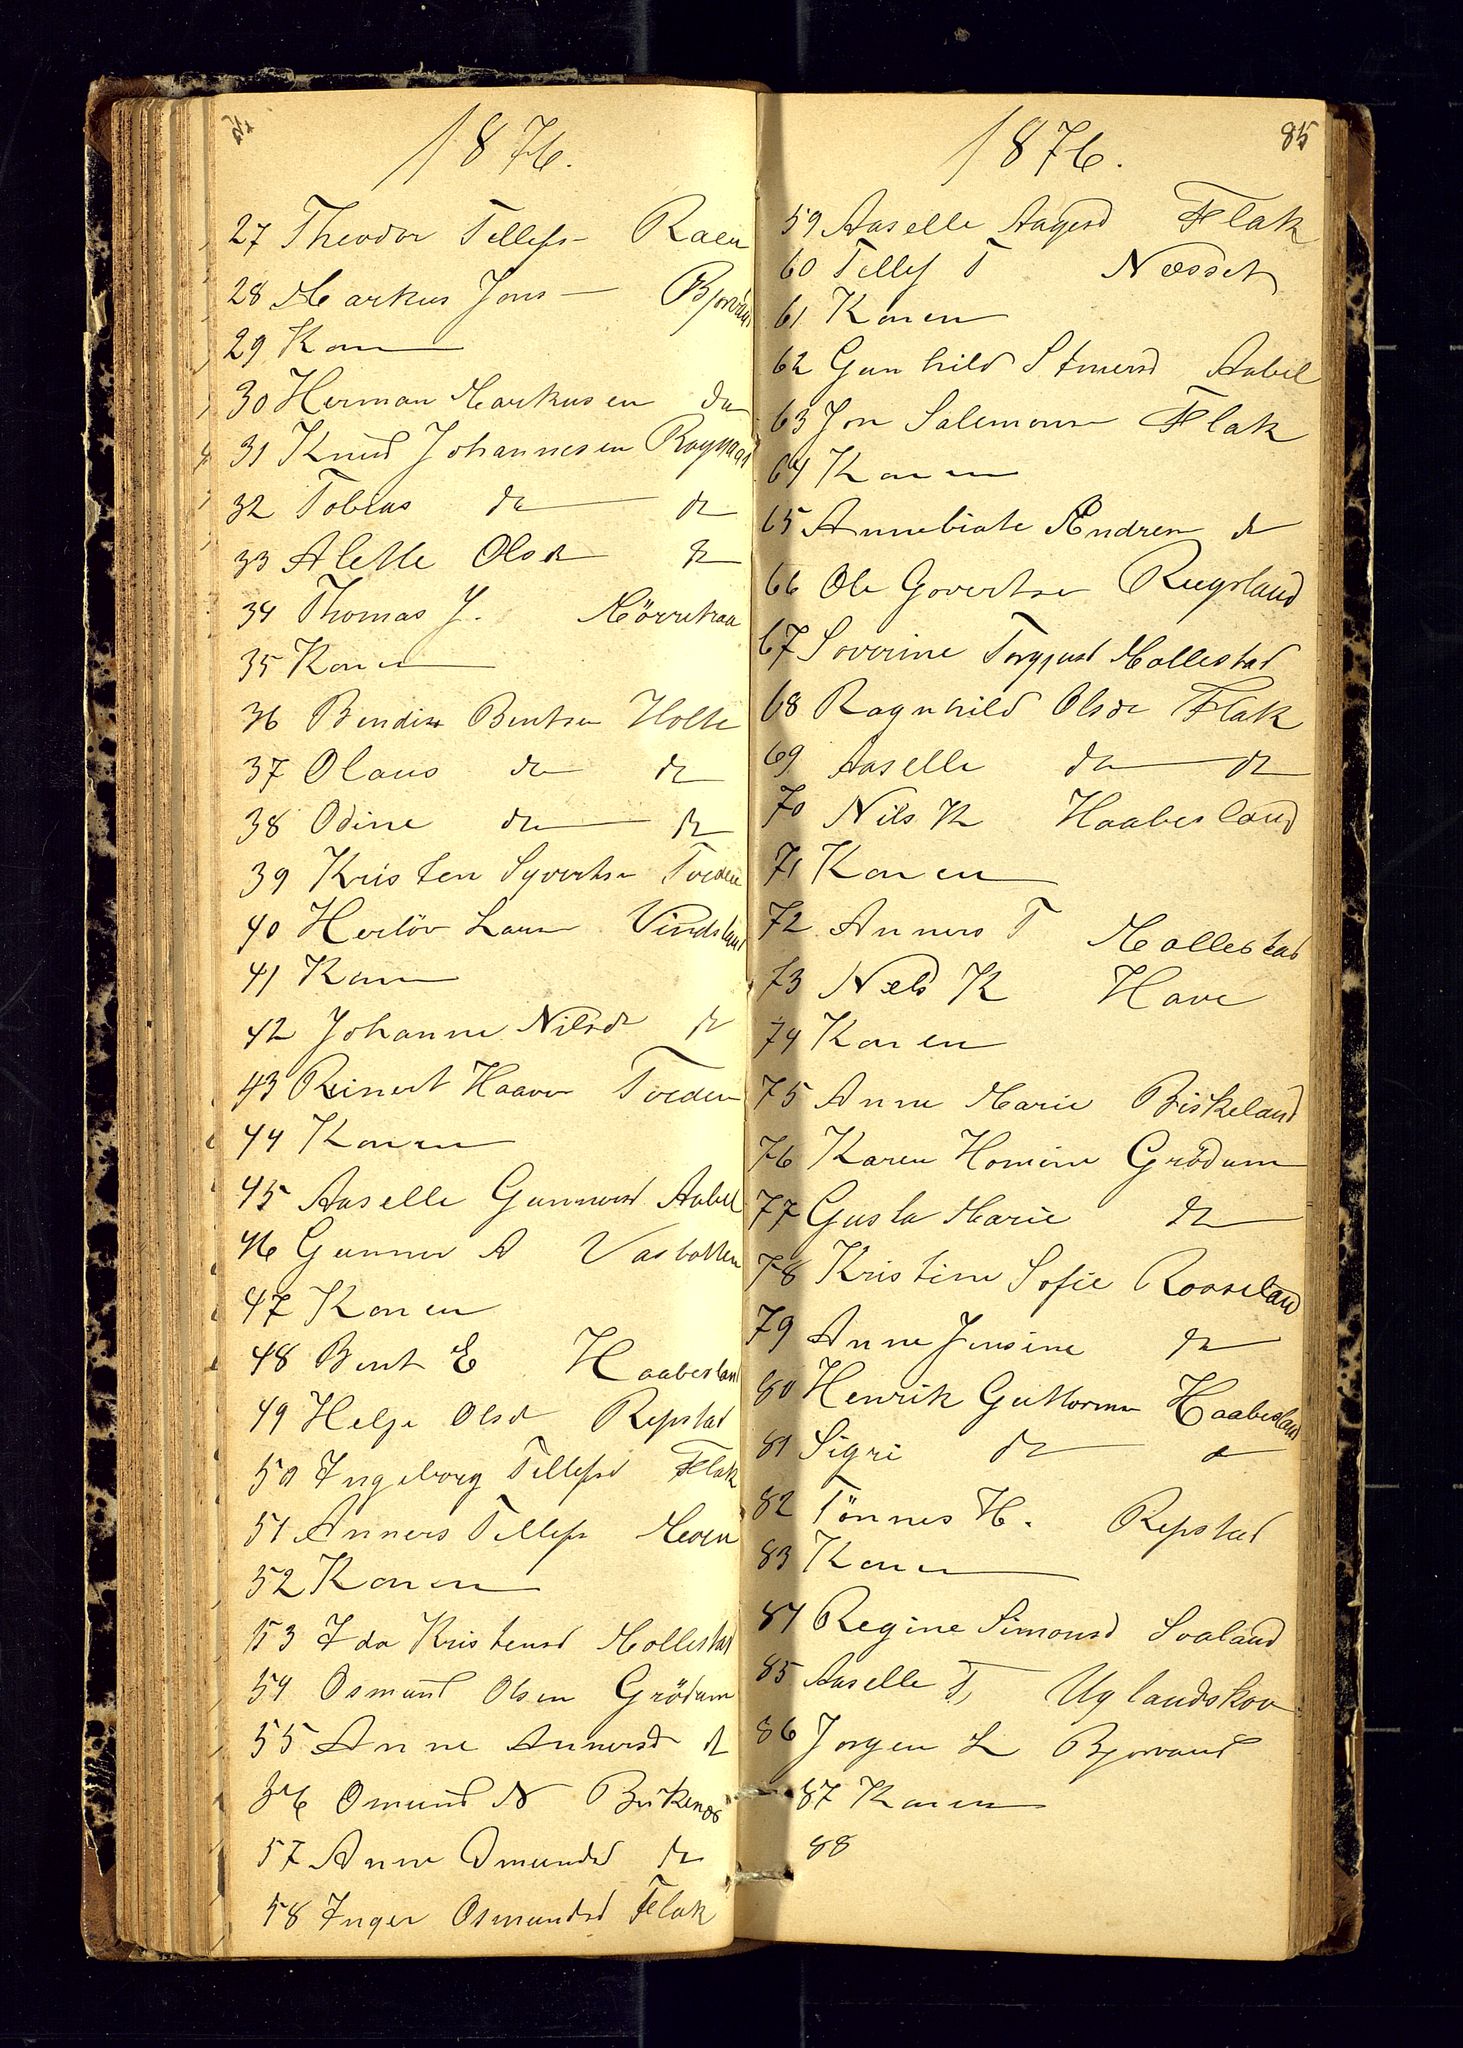 1876.
27 Theodor Tellefs- Raen
28 Markus Jons- Bjorvand
29 Kon
30 Herman Markusen do
31 Knud Johannesen
32 Tobias do do
33 Alette Olsd do
34 Thomas J.
35 Konen
36 Bendix Bentsen Holte
37 Olaus do do
38 Odine do do
39 Kristen Syverts Tveden
40 Herlöv Larsen Vindsland
41 Kon
42 Johanne Nilsd do
43 Reinert Haaver Tveden
44 Konen
45 Aaselle Gunnersd Aabel
46 Gunner A Vasbotten
47 Konen
48 Bent E Haabesland
49 Helje Olsd Repstad
50 Ingeborg Tellefsd Flak
51 Anners Tellefs Moen
52 Konen
53 Ida Kristensd Mollestad
54 Osmund Olsen Grödum
55 Anne Annersd do
56 Omund N Birkenes
57 Anne Omundsd do
58 Inger Osmundsd Flak
85
1876.
59 Aaselle Aagesd Flak
60 Tellef T Næsset
61 Konen
62 Gunhild Aabel
63 Jon Salemons Flak
64 Konen
65 Annebiate Andrea do
66 Ole Govertsen Rugsland
67 Soverine Torgjusd Mollestad
68 Ragnhild Olsdr Flak
69 Aaselle do do
70 Nils K Haabesland
71 Konen
72 Anners T Mollestad
73 Næls K Have
74 Konen
75 Anne Marie Birkeland
76 Karen Homine Grödum
77 Gusta Marie do
78 Kristine Sofie Roaseland
79 Anne Jensine do
80 Henrik Guttorms Haabesland
81 Sigri do do
82 Tönnes H. Repstad
83 Konen
84 Regine Simonsd Soaland
85 Aaselle T, Uglandskov
86 Jorgen L Bjorvand
87 Konen
88